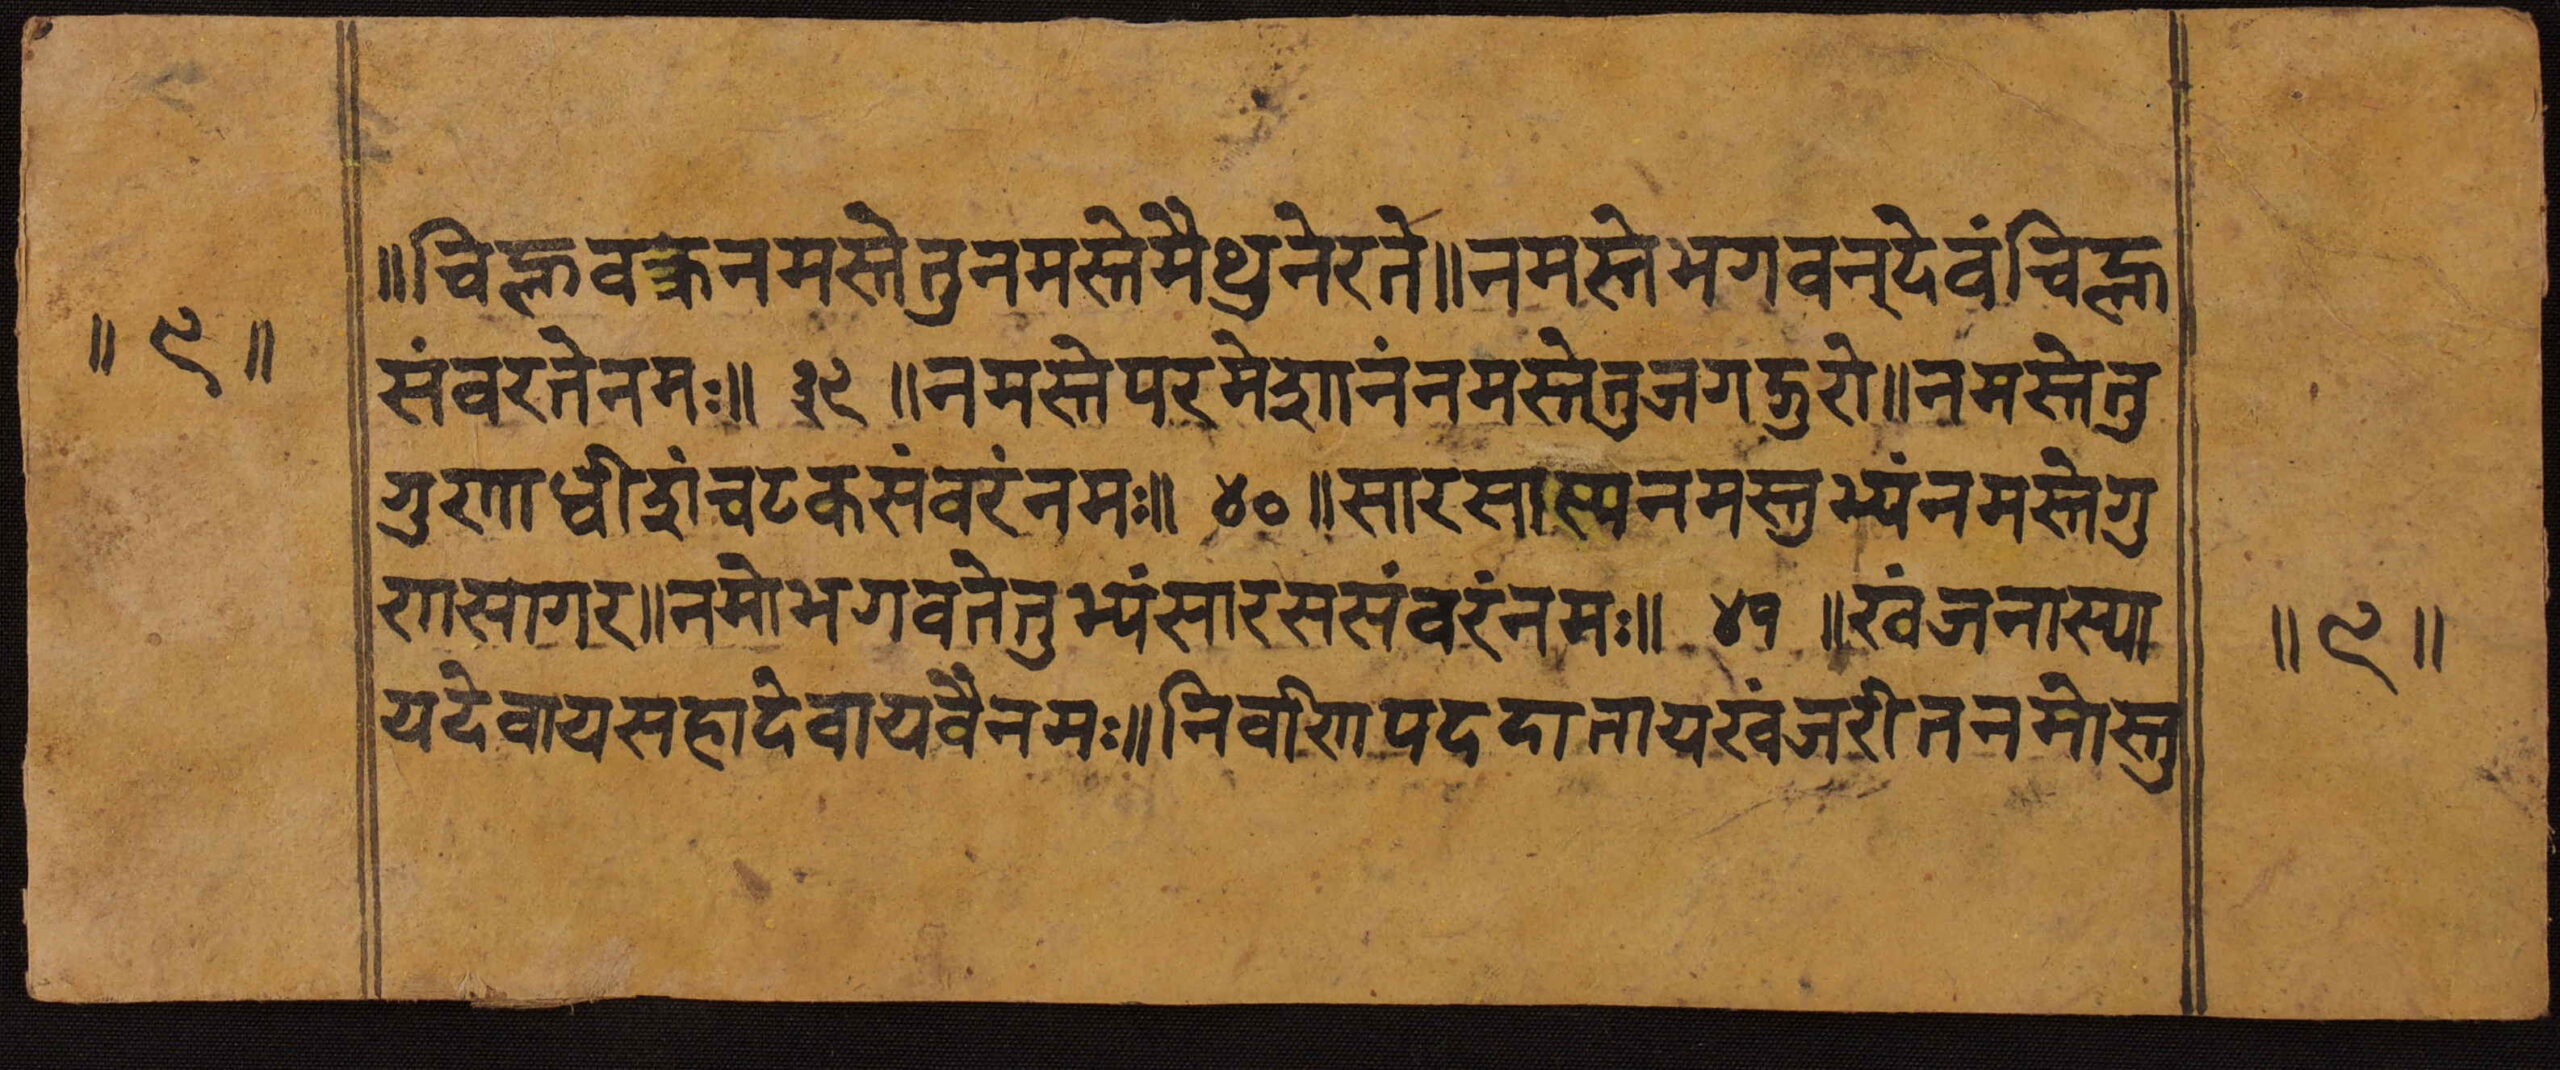 ॥चिह्लवक्रनमस्तेतुनमस्तेमैथुनेरते॥नमस्तेभगवन्देवंचिह्ल
॥ ९ ॥
संवरतेनमः॥ ३९ ॥नमस्तेपरमेशानंनमस्तेतुजगद्गुरो॥नमस्तेतु
गुणाधीशंचटकसंवरंनमः॥ ४० ॥सारसास्यनमस्तुभ्यंनमस्तेगु
णसागर॥नमोभगवतेतुभ्यंसारससंवरंनमः॥ ४१ ॥खंजनास्या
॥ ९ ॥
यदेवायसहादेवायवैनमः॥निर्वाणपददातायखंजरीतनमोस्तु